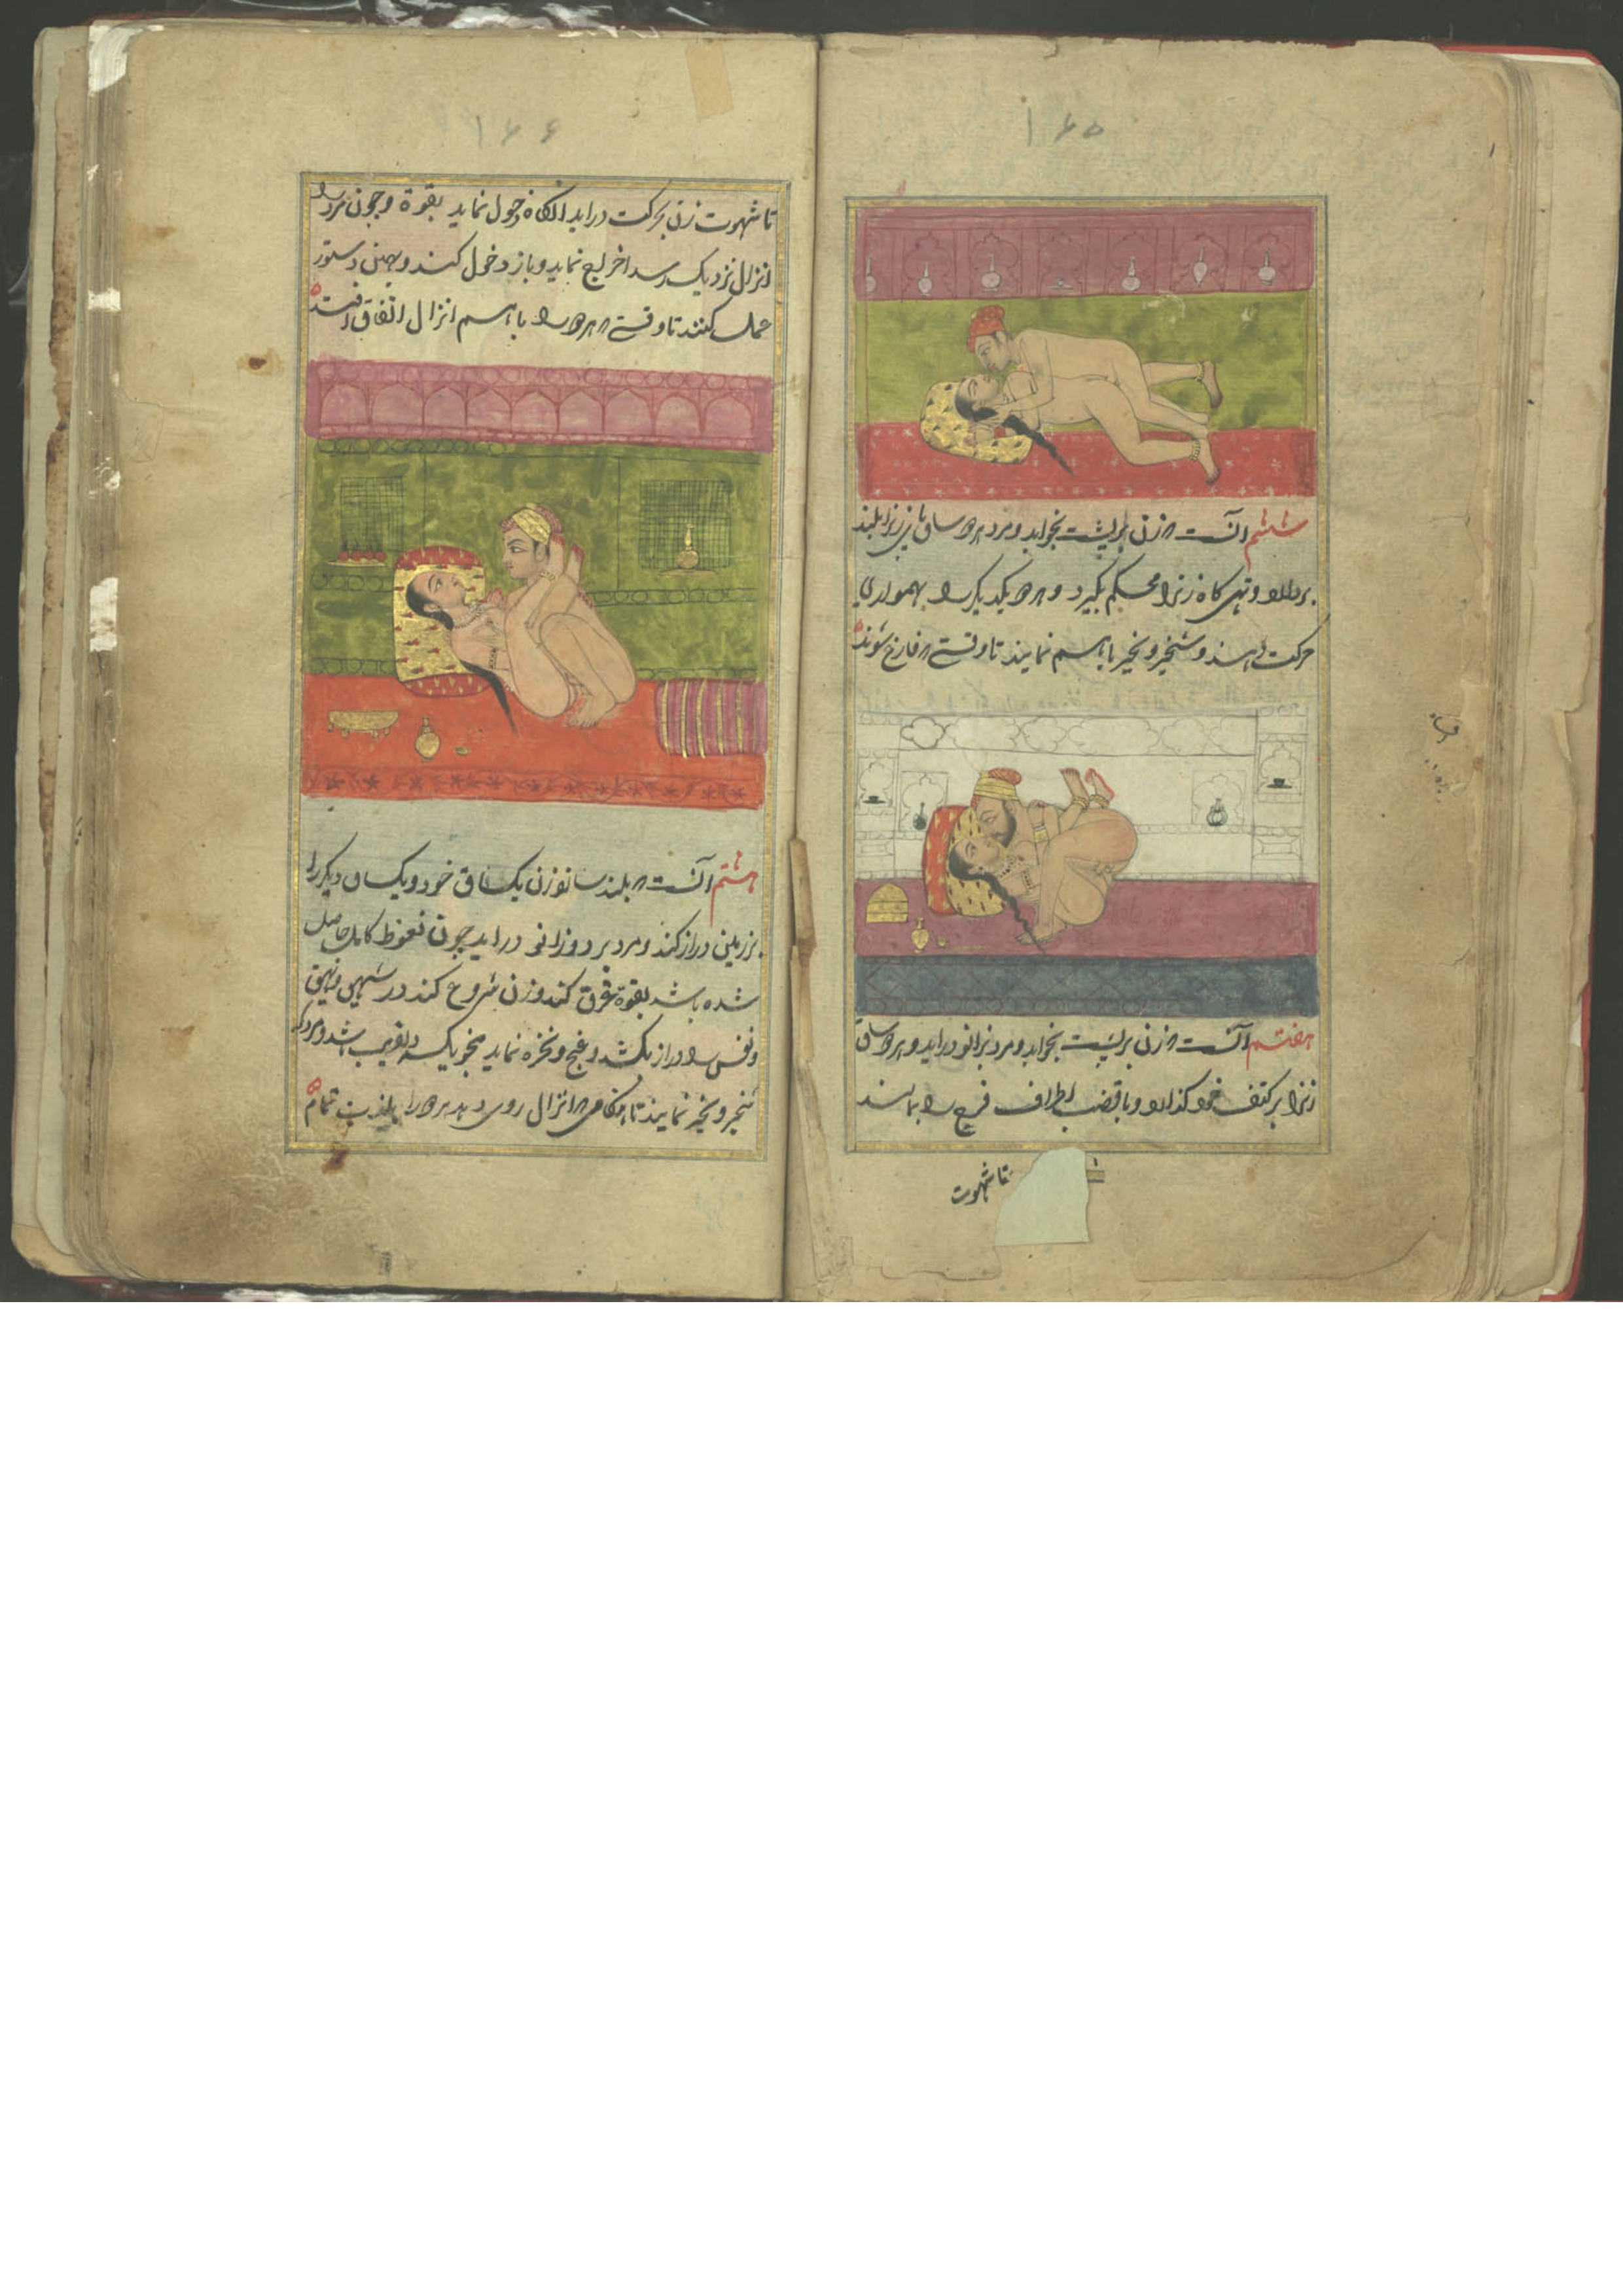 ۱۶۵
ششم آنست که زن بر پشت بخوابد و مرد هر دو ساق پای زنرا بلند
بردارد و تهی کاه زنرا محکم بگیرد و هر دو یکدیگر را بهمواری
حرکت دهند و شخیر و نخیر باهم نمایند تا وقتی که فارغ شوند
هفتم آنست که زن بر پشت بخوابد و مرد بزانو دراید و هر دو ساق
زنرا بر کتف خود کذارد و با قضیب اطراف فرج را بمالند
تا شهوت
۱۶۶
تا شهوت زن بحرکت دراید انکاه دخول نماید بقوة و چون مرد را
انزال نزدیک رسد اخراج نماید و باز دخول کند و بهمین دستور
عمل کنند تا وقتی که هر دو را باهم انزال اتفاق افتد
هشتم آنست که بلند سازد زن یک ساق خود و یک ساق دیکر را
بر زمین دراز کند و مرد بر دو زانو دراید چون نعوظ کامل حاصل
شده باشد بقوة غرق کند و زن شروع کند در شهیق و نهیق
و نفس را دراز بکشد و غنج و نخره نماید بنحویکه دلفریب باشد و مرد که
شخیر و نخیر نمایند تا هنکامی که انزال روی دهد هر دو را بلذت تمام